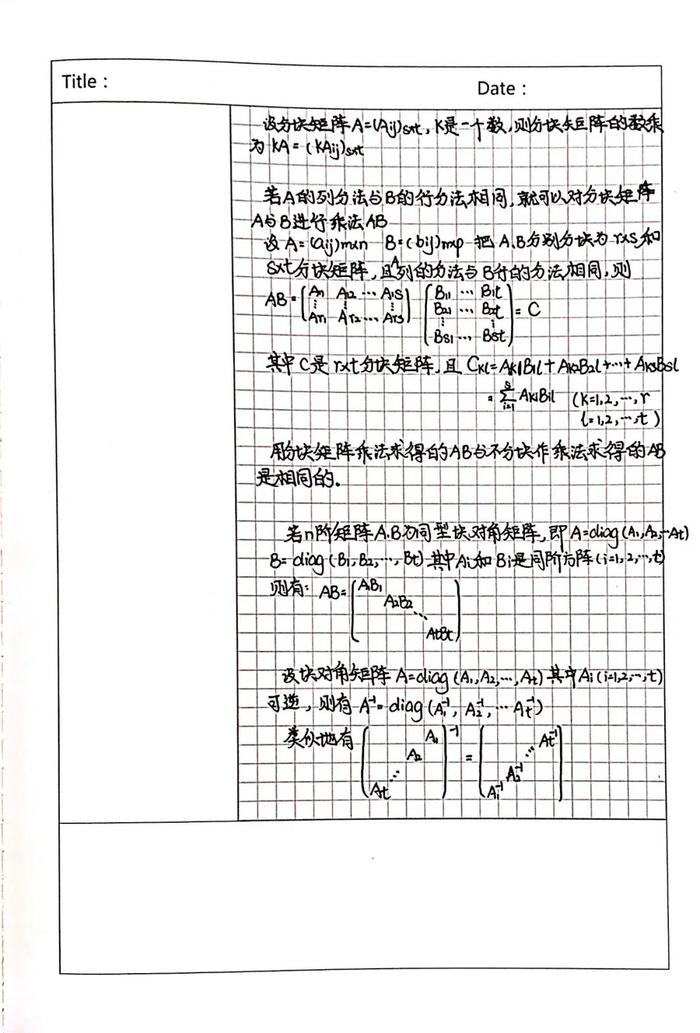 Title：
Date：
设分块矩阵A=(Aij)sxt，K是一个数，则分块矩阵的数乘
为KA=(KAij)sxt
若A的列分法与B的行分法相同，就可以对分块矩阵
A与B进行乘法AB
设A=(aij)mxn B=(bij)nxp 把A.B分别分块为rxs和
sxt分块矩阵，且A列的方法与B行的方法相同，则
AB=(A11 A12 … A1S ⋮ ⋮ ⋮ Ar1 Ar2 … Ars) (B11 … B1t B21 … B2t ⋮ ⋮ Bs1 … Bst) = C
其中C是rxt分块矩阵，且 CKl=AK1B1l+AK2B2l+…+AKSBSl
=∑(i=1→s) AKiBil (K=1,2,…,r
l=1,2,…,t)
用分块矩阵乘法求得的AB与不分块作乘法求得的AB
是相同的.
若n阶矩阵A.B为同型块对角矩阵，即A=diag(A1,A2,…At)
B=diag(B1,B2,…,Bt) 其中Ai和Bi是同阶方阵(i=1,2,…,t)
则有：AB=(A1B1 A2B2 ⋱ AtBt)
设块对角矩阵A=diag(A1,A2,…,At) 其中Ai(i=1,2,…,t)
可逆，则有A⁻¹=diag(A1⁻¹, A2⁻¹, … At⁻¹)
类似地有 (A1 A2 ⋰ At)⁻¹ = (At⁻¹ ⋰ A2⁻¹ A1⁻¹)